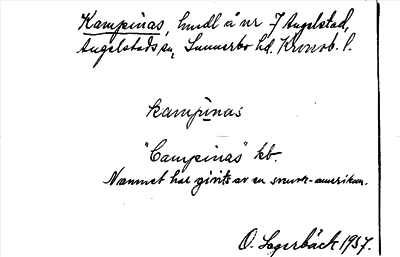 Kampinas, hmdl å nr 7 Angelstad,
Angelstads sn, Sunnerbo hd. Kronob. l.
kampinas
"Campinas" kb.
Namnet har givits av en svensk-amerikan.
O. Lagerbäck 1937.